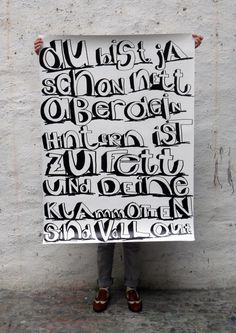 du bist ja
schon nett
aber dein
Hintern IST
ZU FETT
UND DEINE
KLAMMOTTEN
SIND VOLL OUT